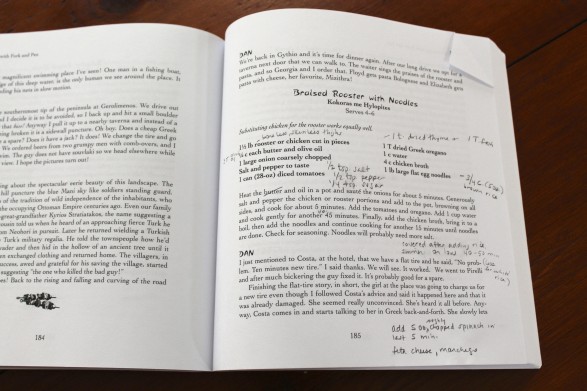 with Fork and Pen
magnificent swimming place I've seen! One man in a fishing boat,
of this deep water is the only human we see around the place. It
nding his nets in slow motion.
southernmost tip of the peninsula at Gerolimenos. We drive out
I decide it is to be avoided, so I back up and hit a small boulder
that boy! Anyway I pull it up to a nearby taverna and instead of a
ing broken it is a sidewall puncture. Oh boy. Does a cheap Greek
a spare? Does it have a jack? It does! We change the tire and go
We ordered beers from two grumpy men with comb-overs, and I
wim. The guy does not have souvlaki so we head elsewhere while
view. I hope the pictures turn out!
ing about the spectacular eerie beauty of this landscape. The
hill puncture the blue Mani sky like soldiers standing guard,
of the tradition of wild independence of the inhabitants, who
the occupying Ottoman Empire centuries ago. Even our family
great-grandfather Kyrios Stratiankos, the name suggesting a
told us when he heard of an approaching fierce Turk he
Neohori in pursuit. Later he returned wielding a Turkish
Turk's military regalia. He told the townspeople how he'd
vader and then hid in the hollow of an ancient tree until it
en exchanged clothing and returned home. The villagers, in
success, awed and grateful for his saving the village, started
suggesting "the one who killed the bad guy!"
es! Back to the rising and falling and curving of the road
184
DAN
We're back in Gythio and it's time for dinner again. After our long drive we opt for a
taverna next door that we can walk to. The waiter sings the praises of the rooster and
pasta, and so Georgia and I order that. Floyd gets pasta Bolognese and Elizabeth gets
pasta with cheese, her favorite, Mizithra!
Braised Rooster with Noodles
Kokoras me Hylopites
Serves 4-6
Substituting chicken for the rooster works equally well.
1½ lb rooster or chicken cut in pieces
¼ c each butter and olive oil
1 large onion coarsely chopped
Salt and pepper to taste
1 can (28-oz) diced tomatoes
1 T dried Greek oregano
1 c water
4 c chicken broth
1 lb large flat egg noodles
1 t dried thyme or 1 T fresh
½ tsp salt
½ tsp pepper
¼ tsp sugar
Heat the butter and oil in a pot and sauté the onions for about 5 minutes. Generously
salt and pepper the chicken or rooster portions and add to the pot, browning on all
sides, and cook for about 5 minutes. Add the tomatoes and oregano. Add 1 cup water
and cook gently for another 45 minutes. Finally, add the chicken broth, bring it to a
boil, then add the noodles and continue cooking for another 15 minutes until noodles
are done. Check for seasoning. Noodles will probably need more salt.
covered after adding rice
DAN
I just mentioned to Costa, at the hotel, that we have a flat tire and he said, "No prob-
lem. Ten minutes new tire." I said thanks. We will see. It worked. We went to Pirelli
and after much bickering the guy fixed it. It's probably good for a spare.
Finishing the flat-tire story, in short, the girl at the place was going to charge us for
a new tire even though I followed Costa's advice and said it happened here and that it
was already damaged. She seemed really unconvinced. She's heard it all before. Any-
way, Costa comes in and starts talking to her in Greek back-and-forth. She slowly lets
185
add 5 oz chopped spinach in
last 5 min.
feta cheese, manchego